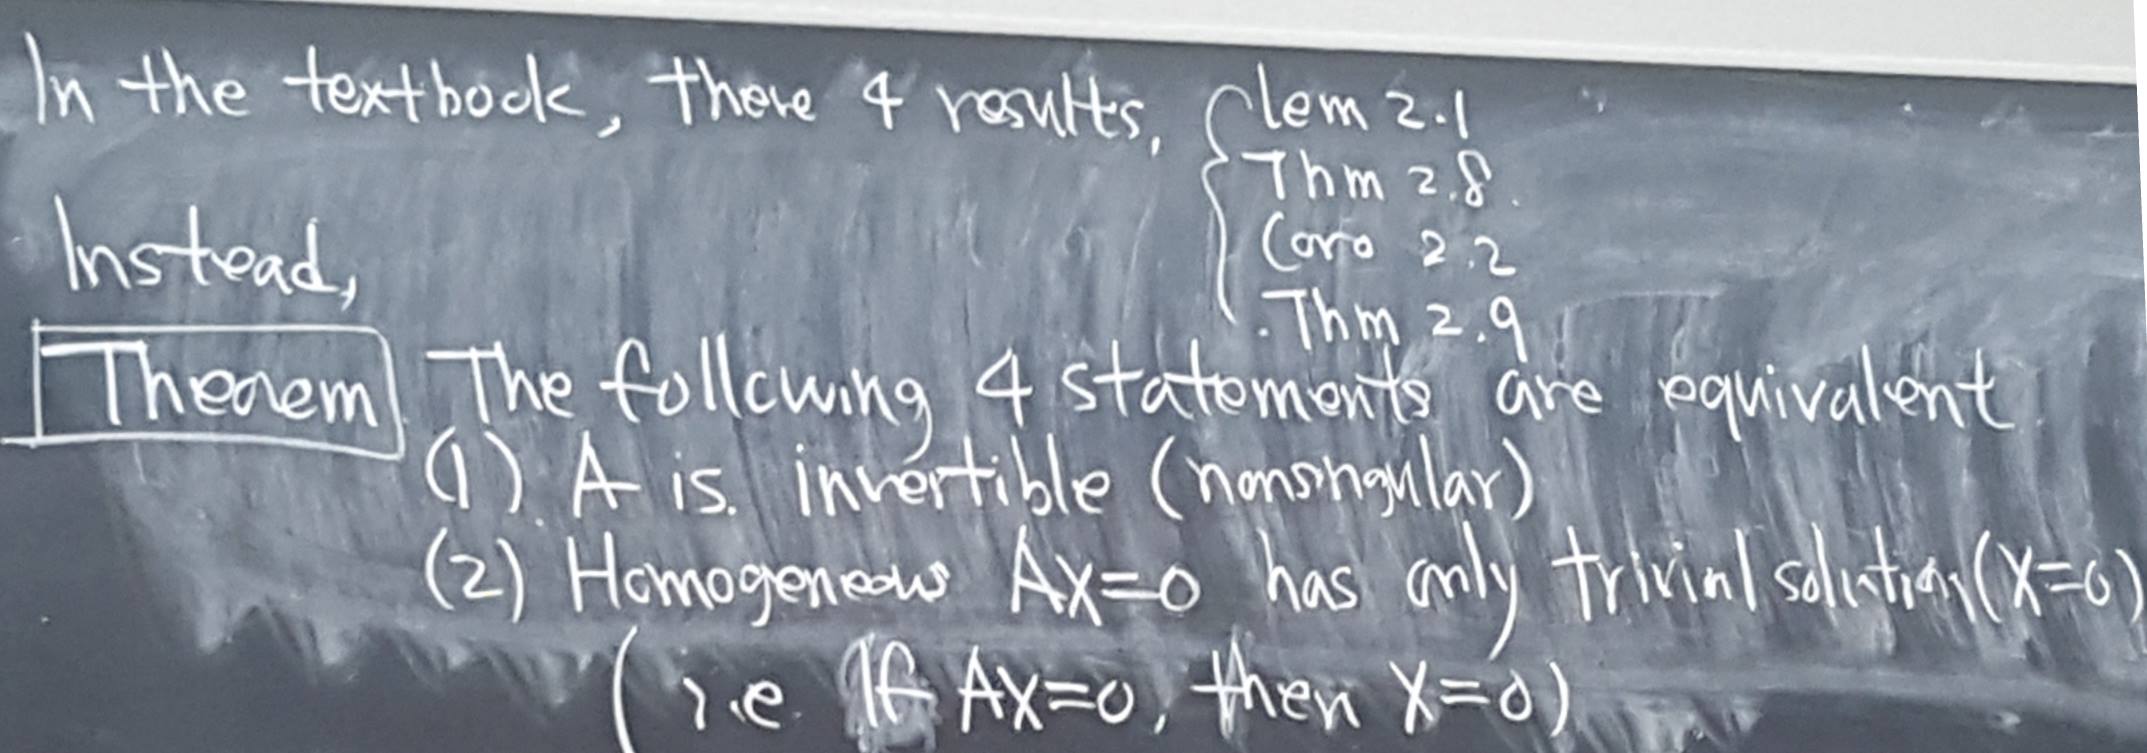 In the textbook, there 4 results, { lem 2.1
Thm 2.8.
Coro 2.2
Thm 2.9
Instead,
Theorem. The following 4 statements are equivalent
(1). A is. invertible (nonsingular)
(2) Homogeneous AX=0 has only trivial solution (X=0)
(i.e. If AX=0, then X=0)